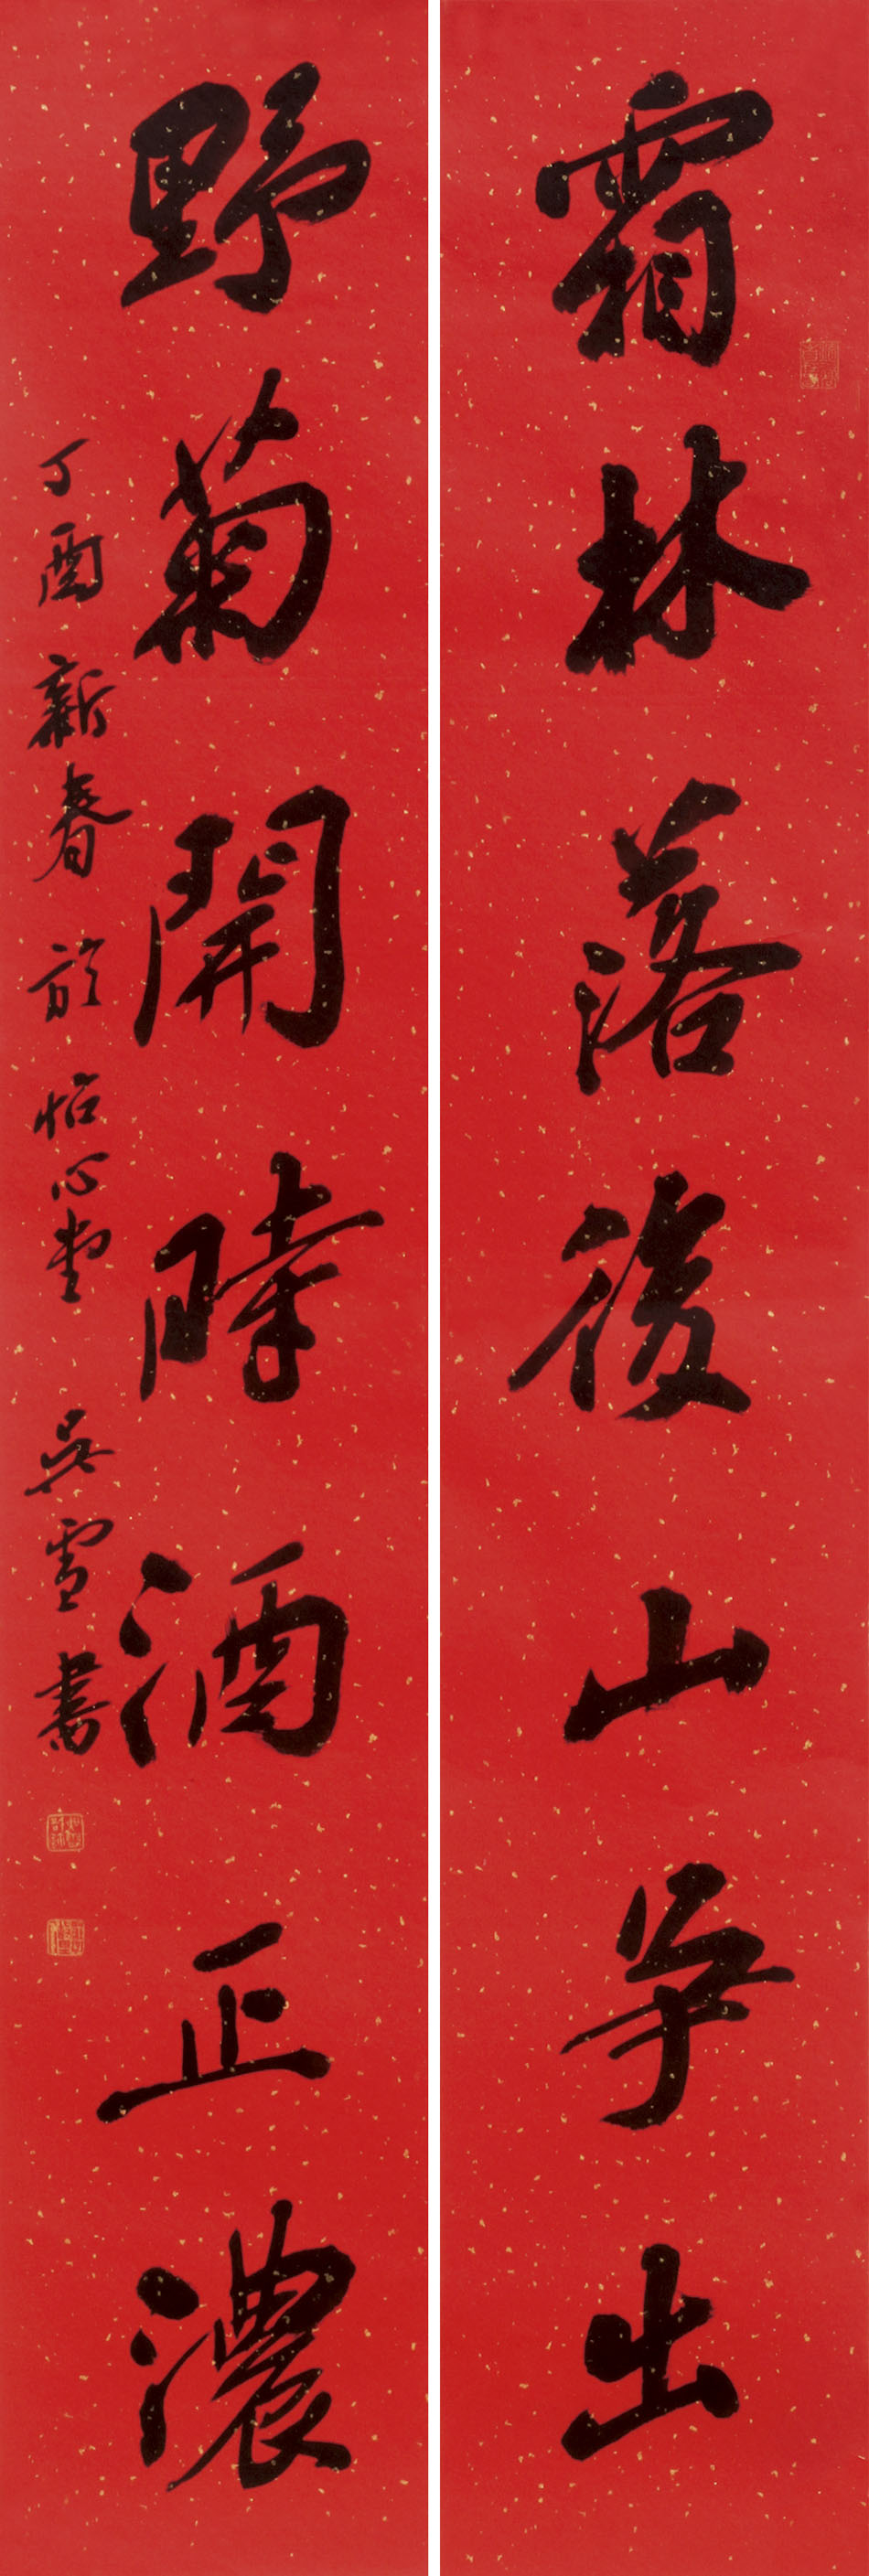 霜林落後山争出
野菊開時酒正濃
丁酉新春於怡心堂吴雪書